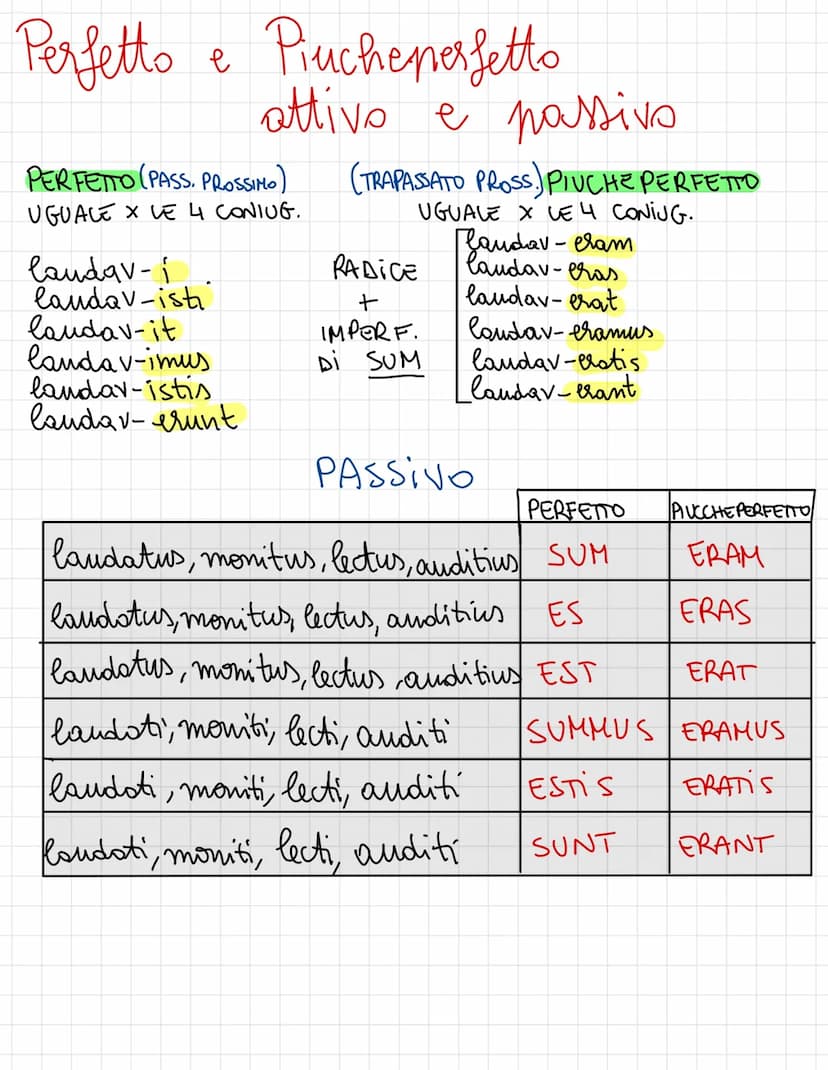 Perfetto e Piuccheperfetto
attivo e passivo
PERFETTO (PASS. PROSSIMO)
UGUALE X LE 4 CONIUG.
laudav-i
laudav-isti
laudav-it
laudav-imus
laudav-istis
laudav-erunt
(TRAPASSATO PROSS.) PIUCHEPERFETTO
UGUALE X LE 4 CONIUG.
RADICE
+
IMPERF.
DI SUM
laudav-eram
laudav-eras
laudav-erat
laudav-eramus
laudav-eratis
laudav-erant
PASSIVO
PERFETTO PIUCCHEPERFETTO
laudatus, monitus, lectus, auditius SUM ERAM
laudatus, monitus, lectus, auditius ES ERAS
laudatus, monitus, lectus, auditius EST ERAT
laudati, moniti, lecti, auditi SUMMUS ERAMUS
laudati, moniti, lecti, auditi ESTIS ERATIS
laudati, moniti, lecti, auditi SUNT ERANT